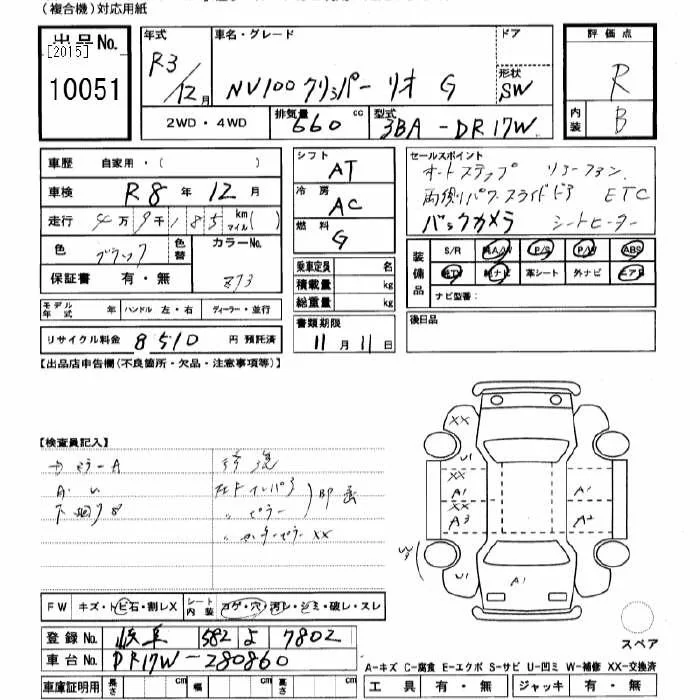 (複合機)対応用紙
出品No. 年式 車名・グレード ドア 評価点
[2015]
10051 R3/12月 NV100クリッパーリオ G 形状 SW R
2WD・4WD 排気量 660cc 型式 3BA-DR17W 内装 B
車歴 自家用・( ) シフト AT セールスポイント
車検 R8年12月 冷房 AC オートステップ
両側パワースライドドア ETC
走行 4万9千185km マイル( ) 燃料 G バックカメラ シートヒーター
色 ブラック 色替 カラーNo. Z73
装備品 S/R 純A/W P/S P/W ABS
純TV 純ナビ 革シート 外ナビ エアB
ナビ型番:
保証書 有・無 乗車定員 名
積載量 kg
総重量 kg
モデル年式 年 ハンドル 左・右 ディーラー・並行
後日品
リサイクル料金 8510円 預託済 書類期限 11月11日
【出品店申告欄(不良箇所・欠品・注意事項等)】
【検査員記入】
XX
U1
XX
A1 A1
XX
A3 A2
U1 A1
FW キズ・トビ石・割レX シート内装 コゲ・穴・汚レ・シミ・破レ・スレ
スペア
登録No. 岐阜 582 よ 7802
車台No. DR17W-280860
A-キズ C-腐食 E-エクボ S-サビ U-凹ミ W-補修 XX-交換済
車庫証明用 長さ cm 幅 cm 高さ cm 工具 有・無 ジャッキ 有・無